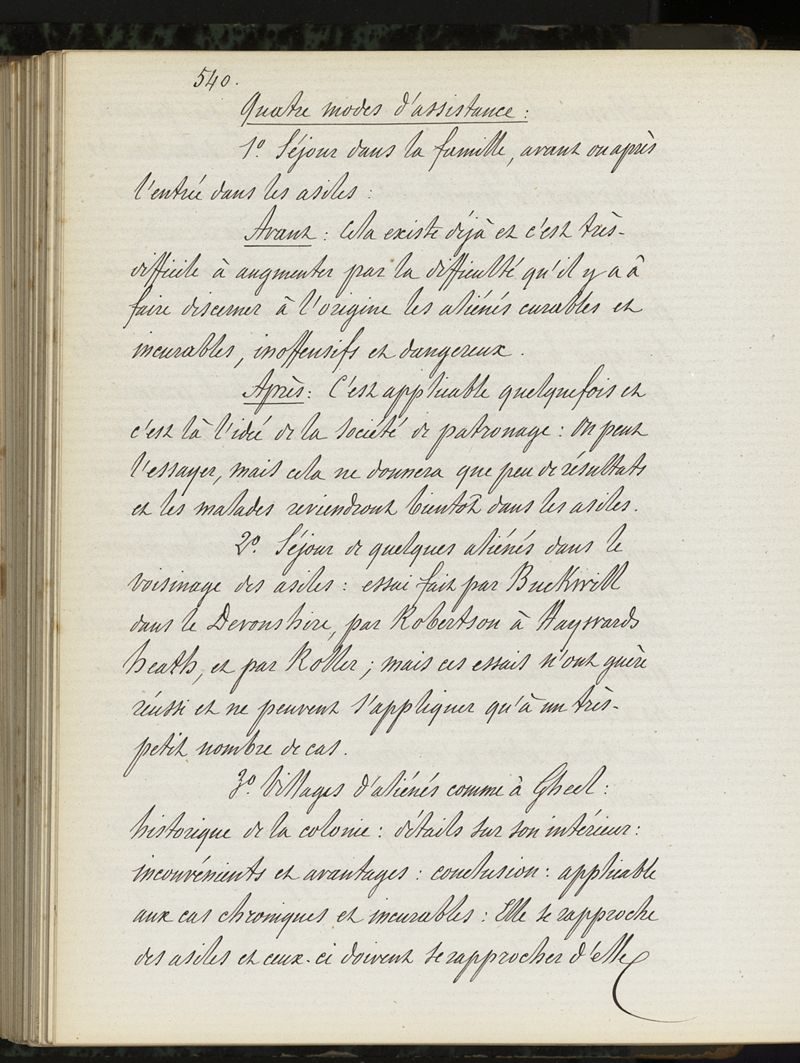 540.
Quatre modes d'assistance :
1º. Séjour dans la famille, avant ou après
l'entrée dans les asiles :
Avant : Cela existe déjà et c'est très-
difficile à augmenter par la difficulté qu'il y a à
faire discerner à l'origine les aliénés curables et
incurables, inoffensifs et dangereux.
Après : C'est applicable quelquefois et
c'est là l'idée de la société de patronage : On peut
l'essayer, mais cela ne donnera que peu de résultats
et les malades reviendront bientôt dans les asiles.
2º. Séjour de quelques aliénés dans le
voisinage des asiles : essai fait par Bucknill
dans le Devonshire, par Robertson à Haywards
heath, et par Roller ; mais ces essais n'ont guère
réussi et ne peuvent s'appliquer qu'à un très-
petit nombre de cas.
3º. Villages d'aliénés comme à Gheel :
historique de la colonie : détails sur son intérieur :
inconvénients et avantages : conclusion : applicable
aux cas chroniques et incurables : Elle se rapproche
des asiles et ceux-ci doivent se rapprocher d'elle